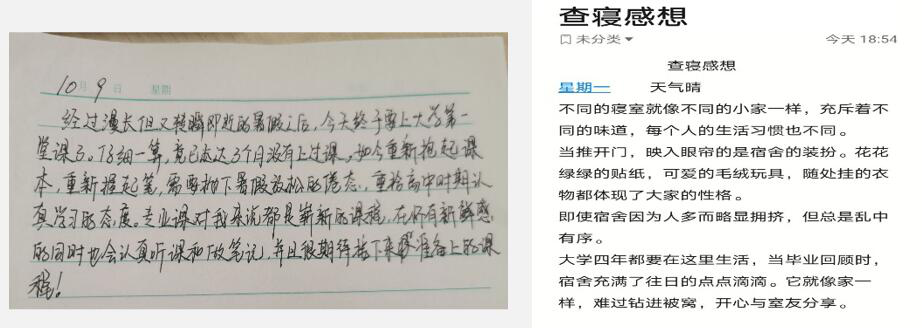 10月 9日 星期
经过漫长但又转瞬即逝的暑假之后，今天终于要上大学第一
堂课了。仔细一算，竟已态达3个月没有上过课，如今重新抱起课
本，重新握起笔，需要抛下暑假放松的倦态，重拾高中时期认
真学习的态度。专业课对我来说都是崭新的课程，在怀有新鲜感
的同时也会认真听课和做笔记，并且很期待接下来准备上的课
程！
查寝感想
未分类
今天 18:54
查寝感想
星期一 天气晴
不同的寝室就像不同的小家一样，充斥着不
同的味道，每个人的生活习惯也不同。
当推开门，映入眼帘的是宿舍的装扮。花花
绿绿的贴纸，可爱的毛绒玩具，随处挂的衣
物都体现了大家的性格。
即使宿舍因为人多而略显拥挤，但总是乱中
有序。
大学四年都要在这里生活，当毕业回顾时，
宿舍充满了往日的点点滴滴。它就像家一
样，难过钻进被窝，开心与室友分享。